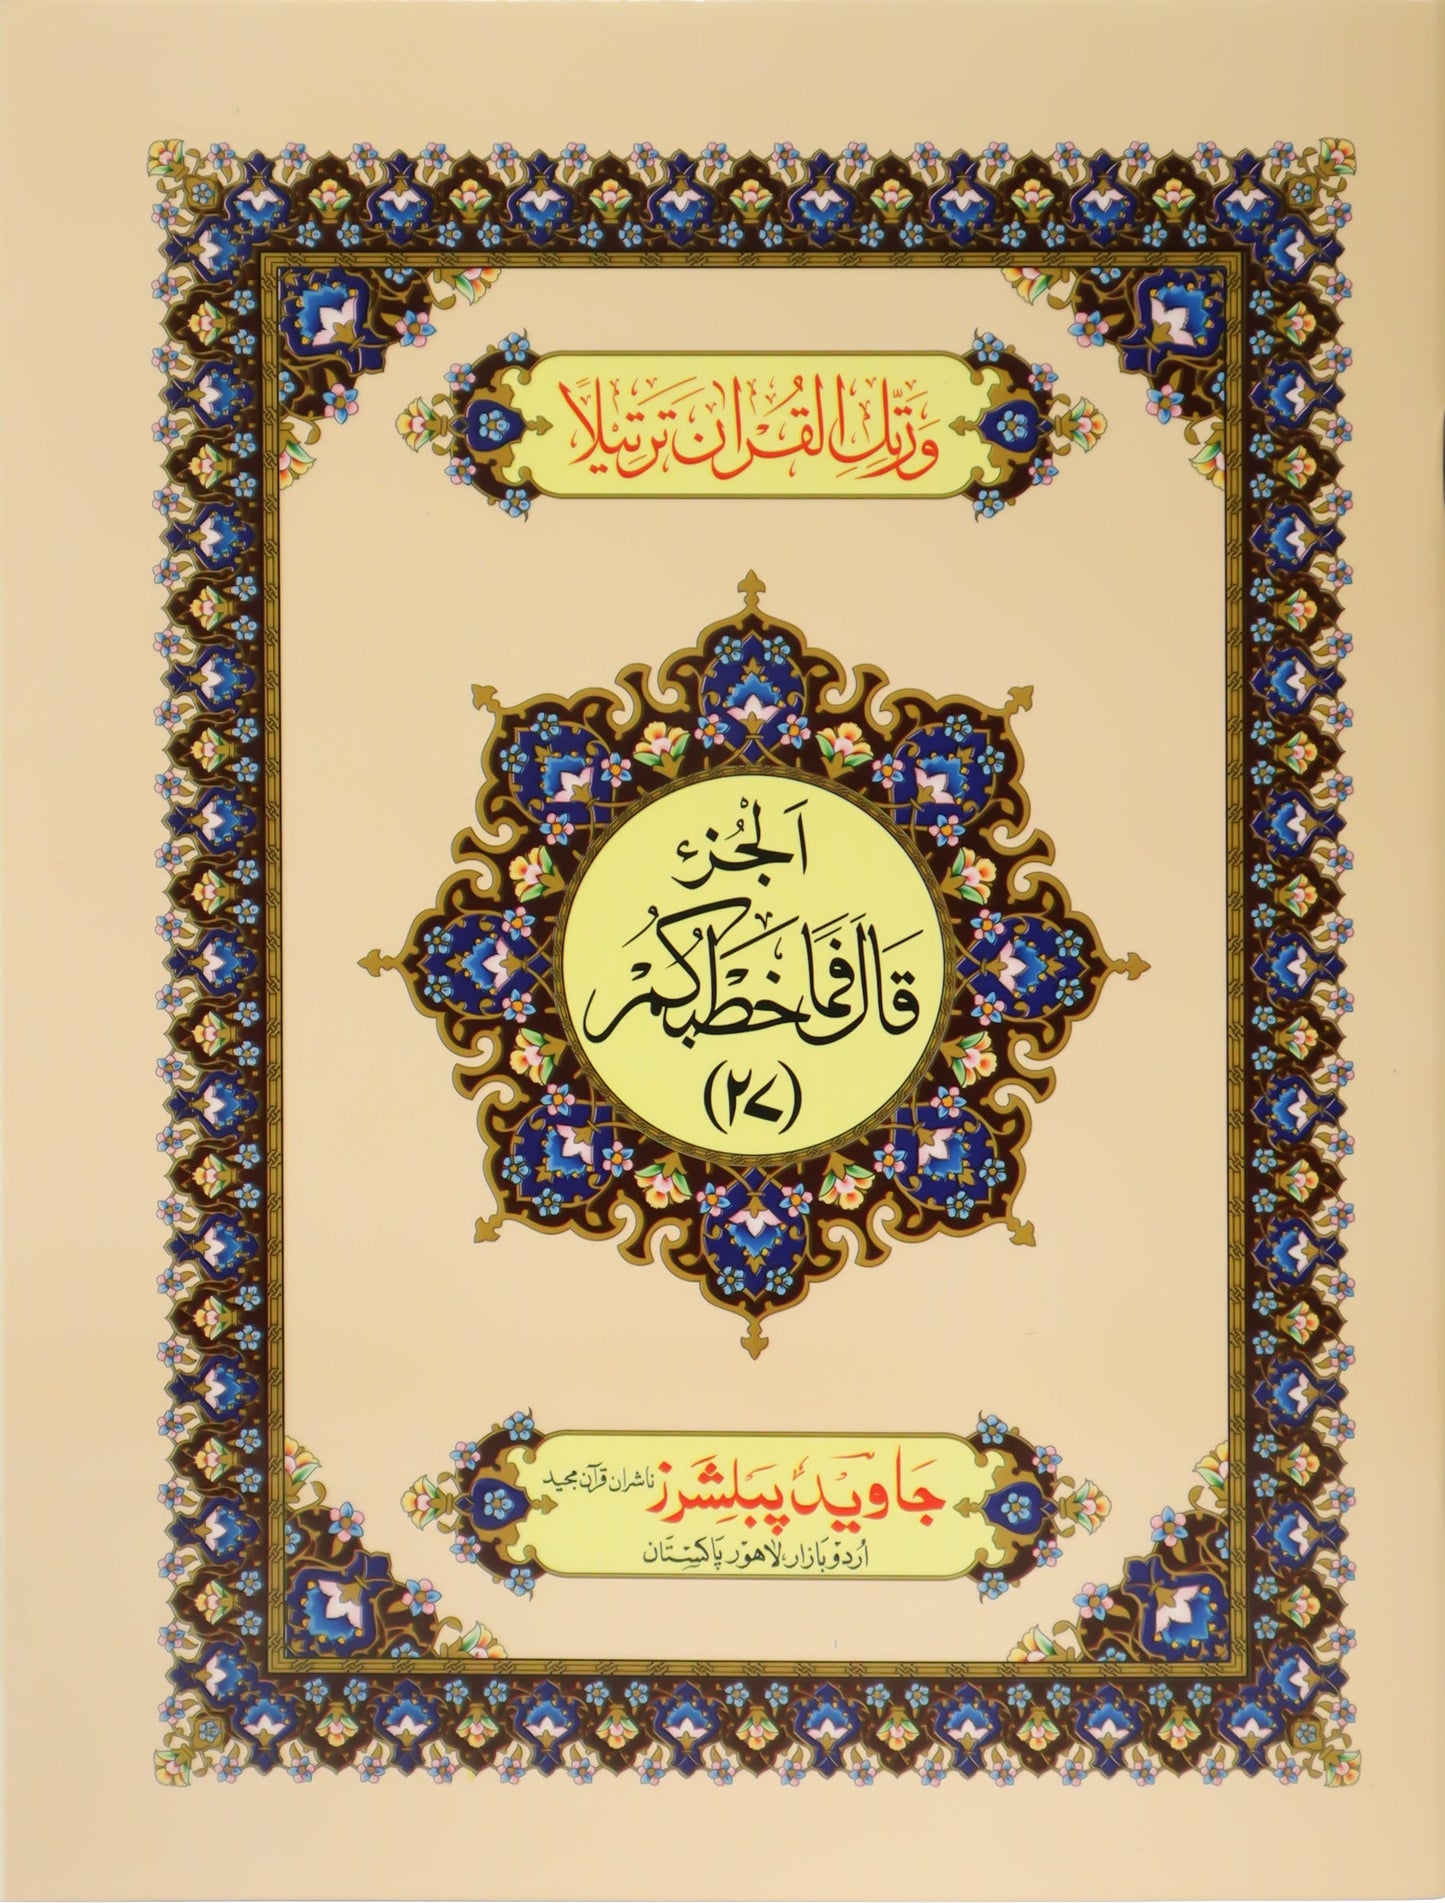 وَرَتِّلِ الْقُرْاٰنَ تَرْتِيْلًا
اَلْجُزْء
قَالَ فَمَا خَطْبُكُمْ
(۲۷)
جاوید پبلشرز ناشران قرآن مجید
اُردو بازار، لاھور پاکستان